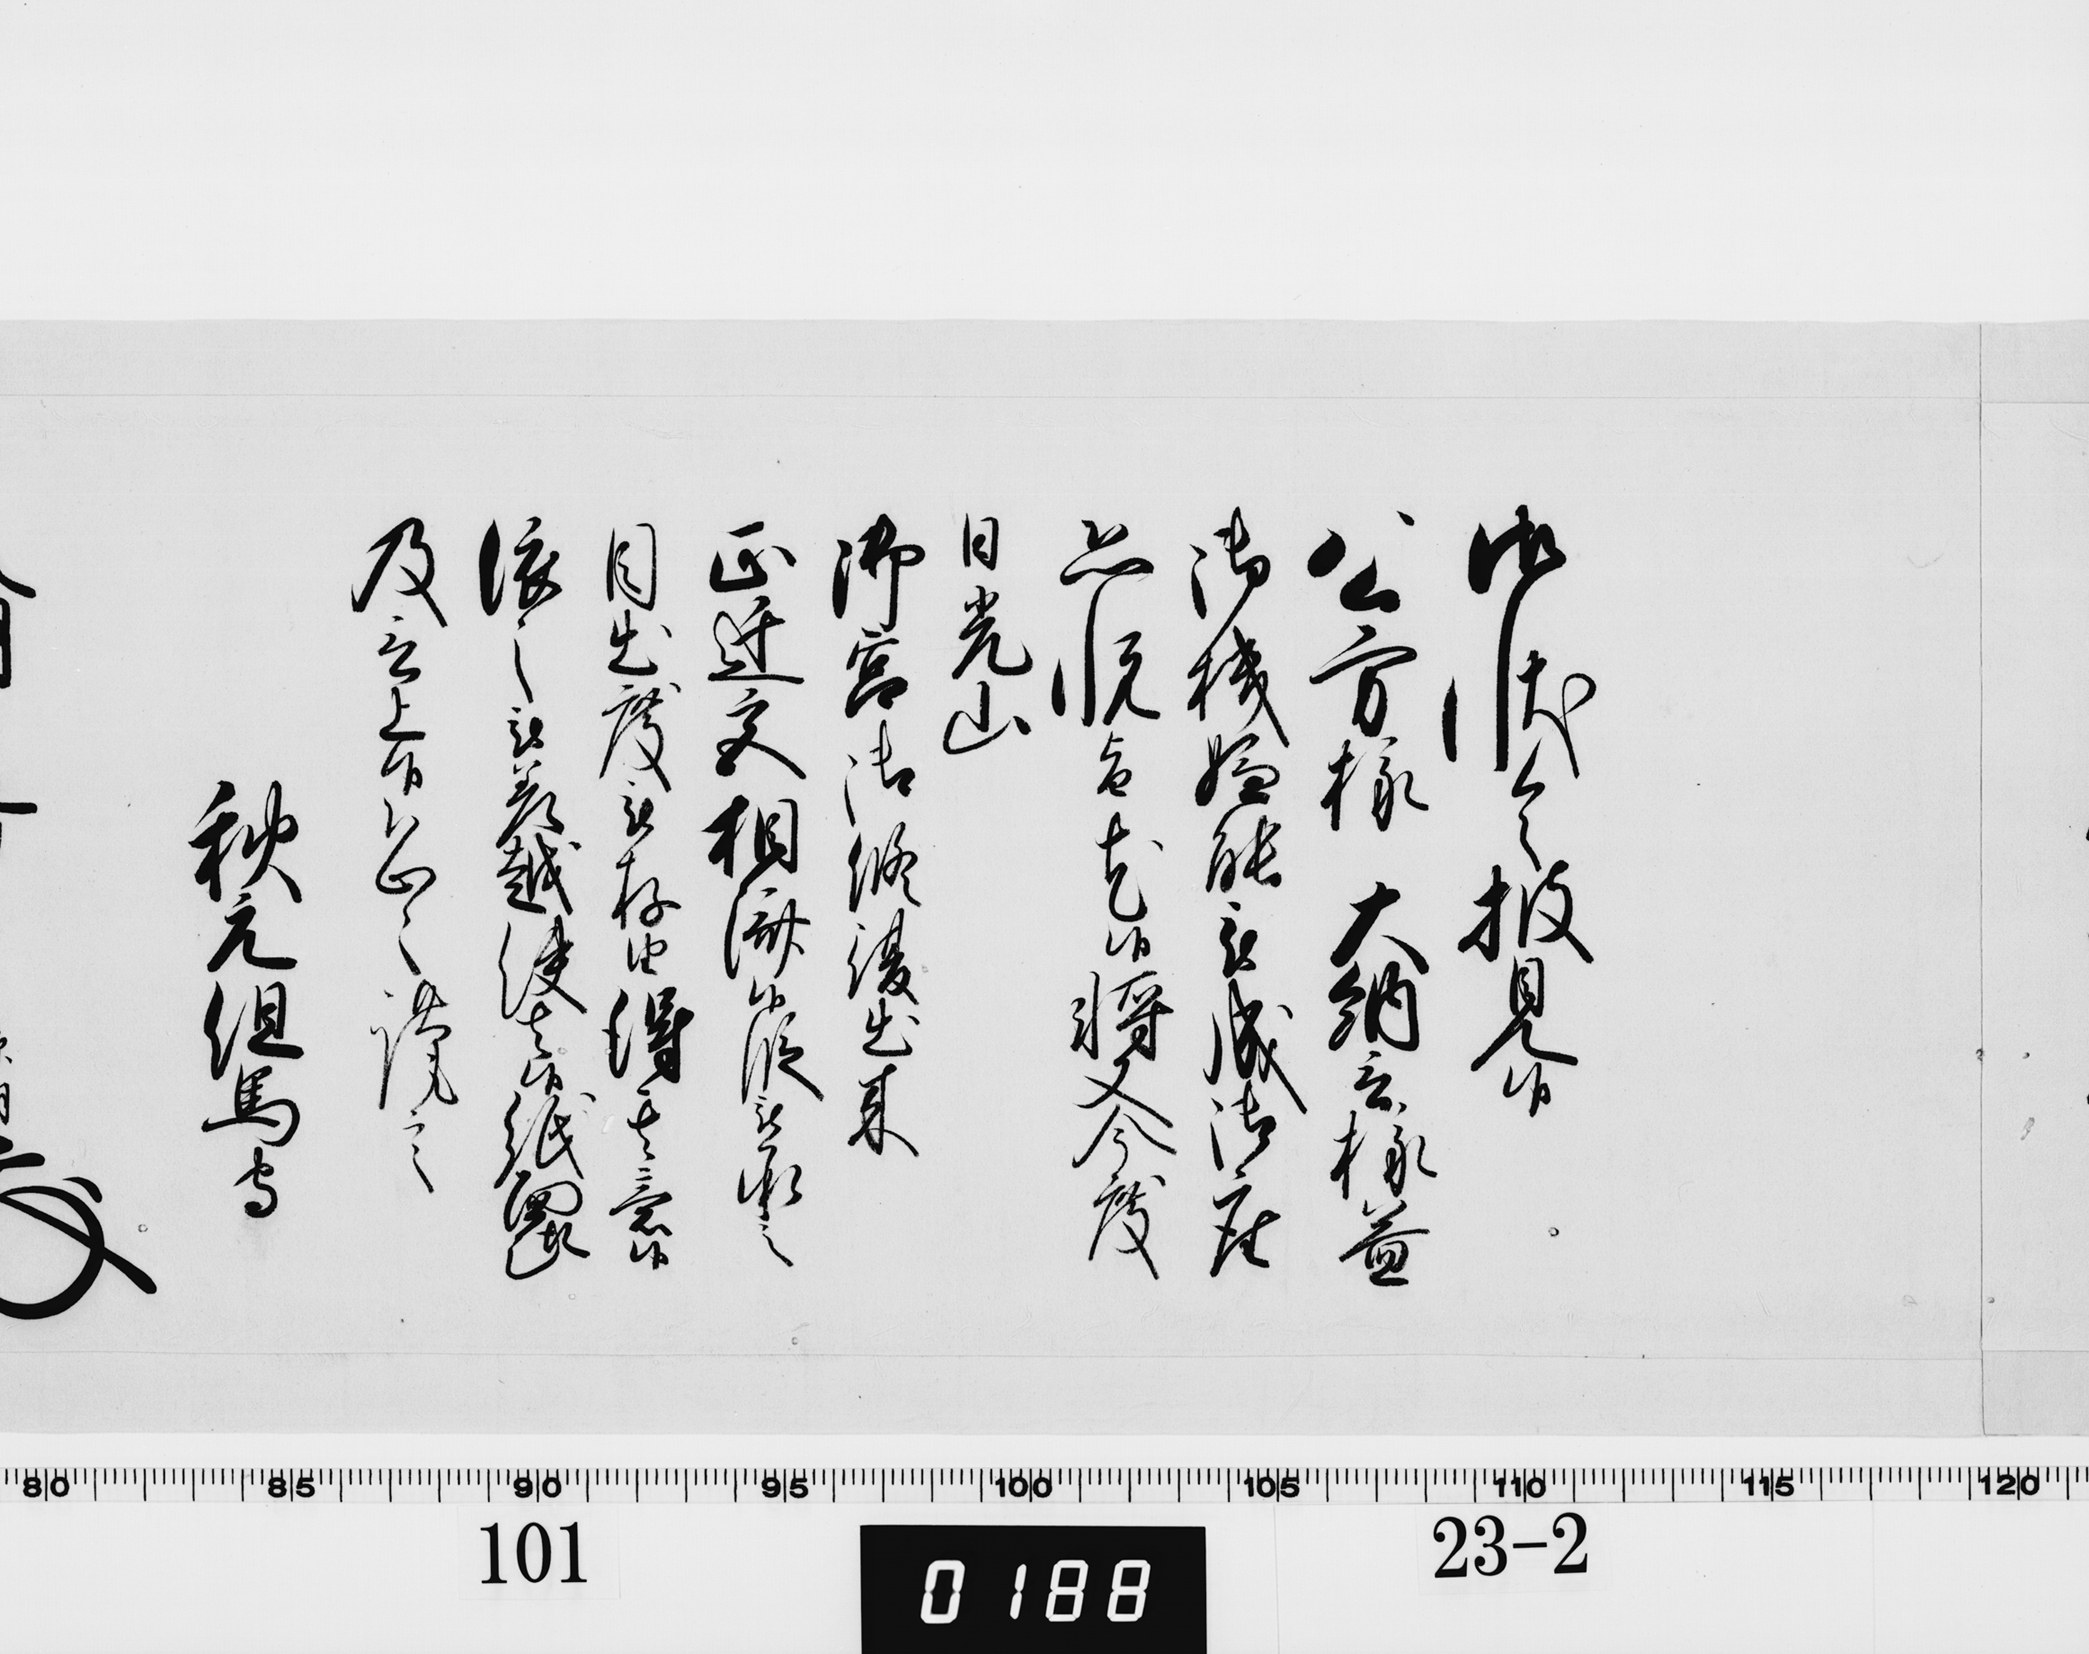 御状令披見候
公方様 大納言様益
御機嫌能被成御座
恐悦旨尤候将又今度
日光山
御宮御修復出来
正遷宮相済候段被承之
目出度被存由得其意候
依之被差越使者候紙面趣
及言上候恐々謹言
秋元但馬守
80 85 90 95 100 105 110 115 120
101
0188
23-2